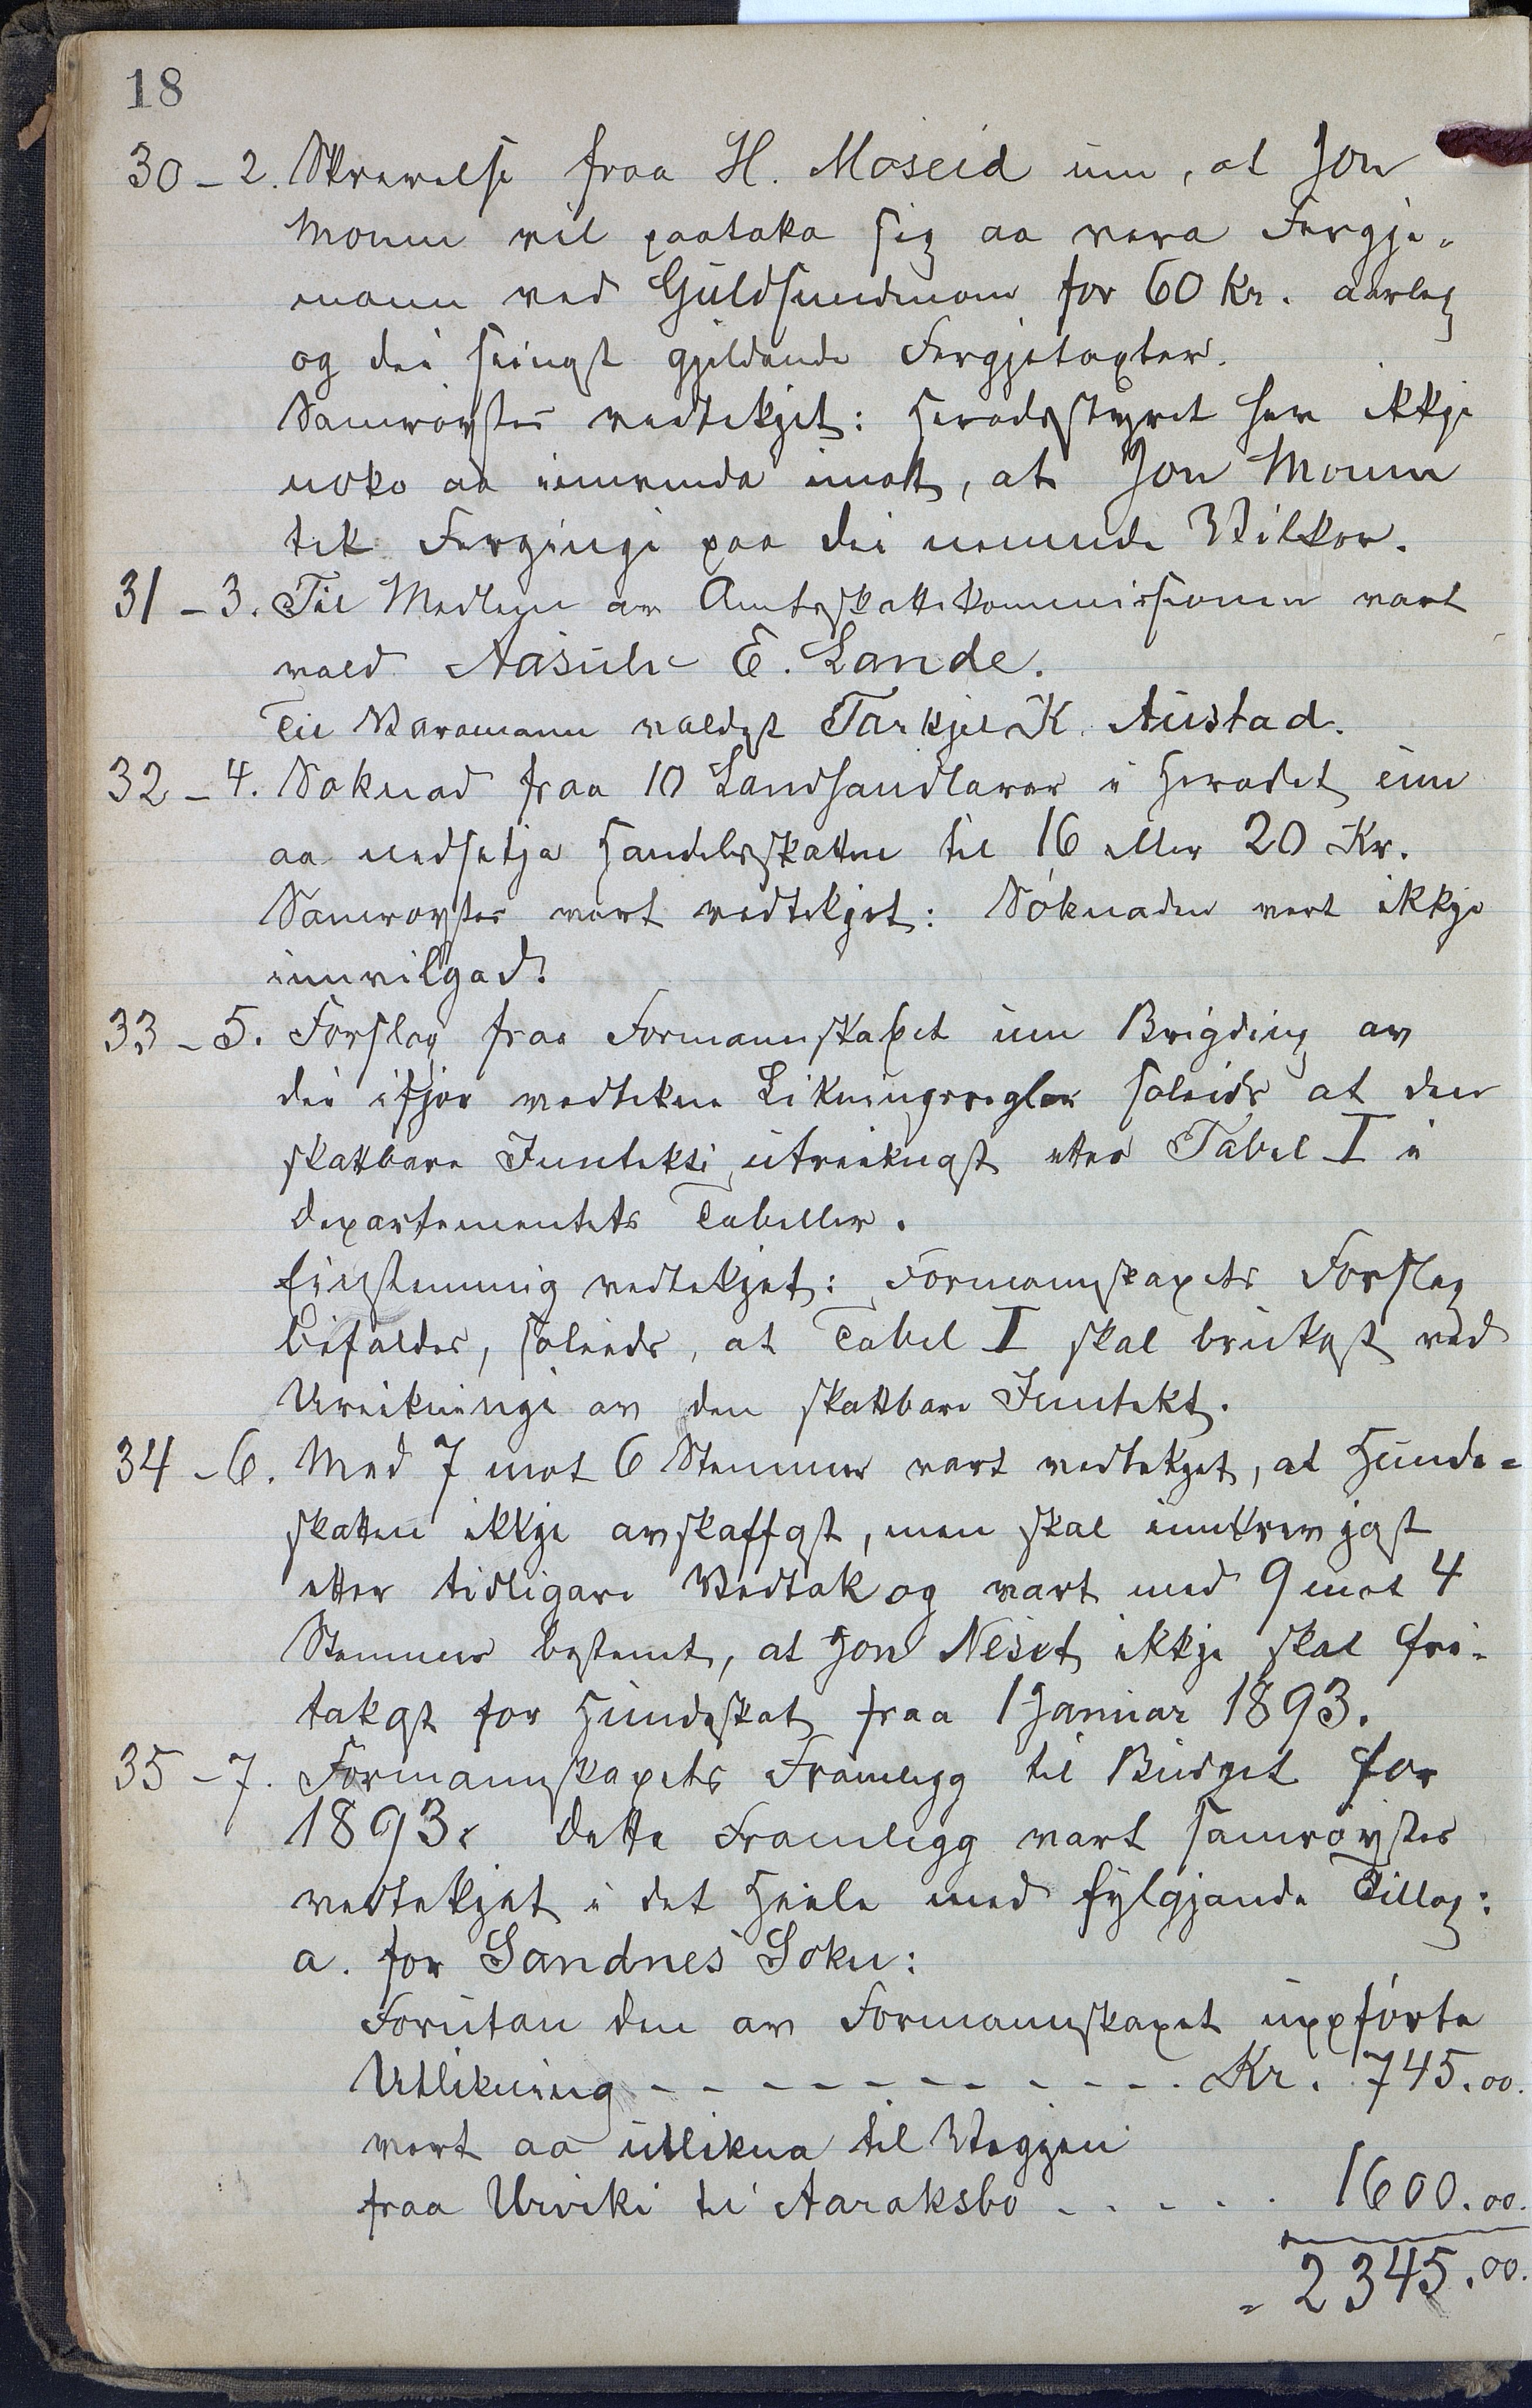 18
30 - 2. Skrivelse fraa H. Moseid um, at Jon
Moum vil paataka sig aa vera Fergje-
mann ved Guldsmedmoen for 60 Kr. aarleg
og dei seinast gjeldande Fergjetaxter.
Samrøystes vedtekjet: Heradsstyret hev ikkje
noko aa innvenda imot, at Jon Moum
tek Fergingi paa dei nemnde Vilkor.
31 - 3. Til Medlem av Amtsskattekommissionen vart
vald Aasulv E. Lande.
Til Varamann valdest Tarkjel K. Austad.
32 - 4. Søknad fraa 10 Landhandlarar i Heradet um
aa nedsetja Handelsskatten til 16 eller 20 Kr.
Samrøystes vart vedtekjet: Søknaden vert ikkje
innvilgad.
33 - 5. Forslag fraa Formannskapet um Brigding av
dei ifjor vedtekne Likningsreglar soleids at den
skattbare Inntekti utreiknast etter Tabel I i
Departementets Tabeller.
Einstemmig vedtekjet: Formannskapets Forslag
bifaldes, soleids, at Tabel I skal brukast ved
Utreikningi av den skattbare Inntekt.
34 - 6. Med 7 mot 6 Stemmer vart vedtekjet, at Hunde-
skatten ikkje avskaffast, men skal innkrevjast
etter tidligare Vedtak og vart med 9 mot 4
Stemmer bestemt, at Jon Neset ikkje skal fri-
takast for Hundeskat fraa 1 Januar 1893.
35 - 7. Formannskapets Framlegg til Budget for
1893. Dette Framlegg vart samrøystes
vedtekjet i det Heile med fylgjande Tillæg:
a. for Sandnes Sokn:
Forutan den av Formannskapet uppførte
Utlikning - - - - - - - - - - - Kr. 745.00.
vert aa utlikna til Vegjen
fraa Urviki til Aaraksbø - - - - - 1600.00.
= 2345.00.